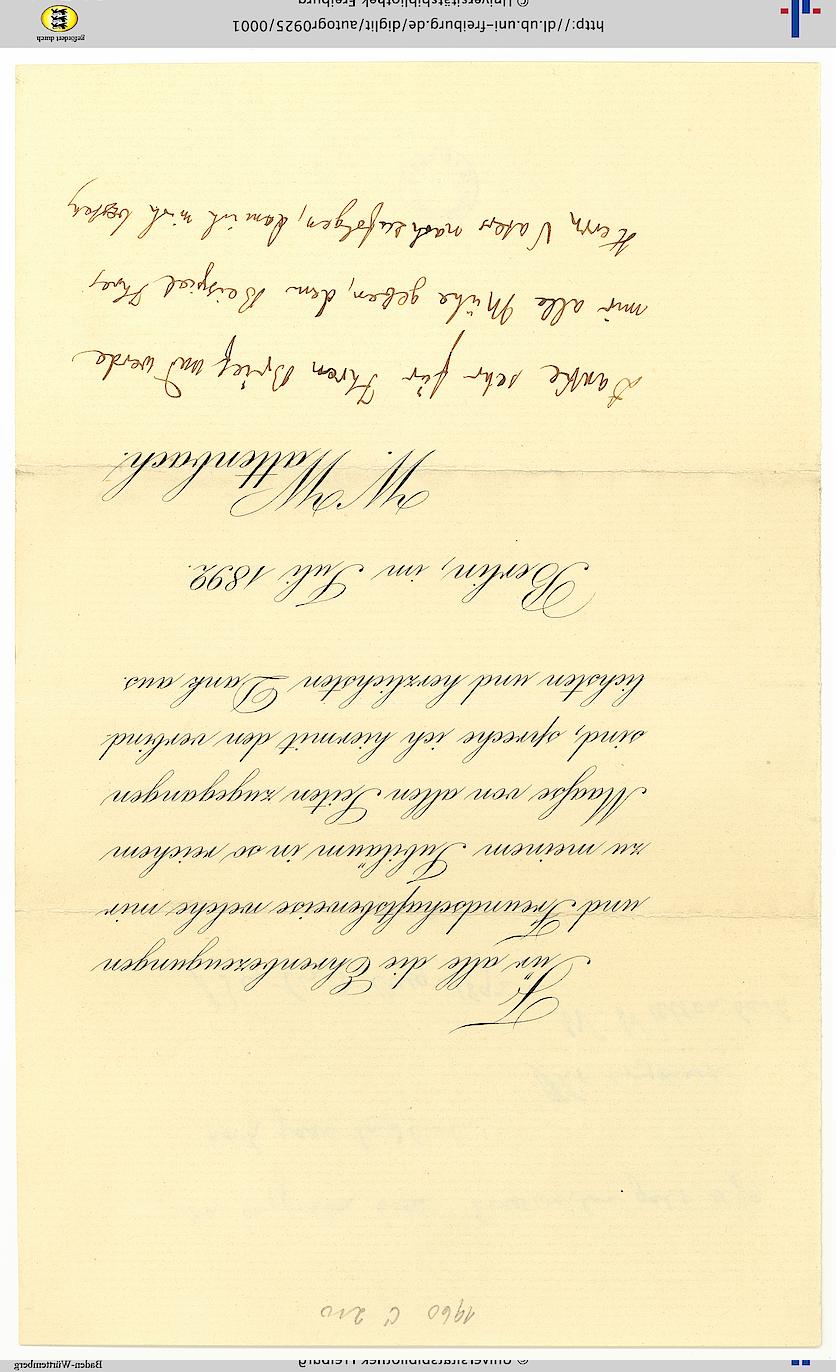 1960 C 210
Für alle die Ehrenbezeugungen
und Freundschaftsbeweise welche mir
zu meinem Jubiläum in so reichem
Maaße von allen Seiten zugegangen
sind, spreche ich hiermit den verbind-
lichsten und herzlichsten Dank aus.
Berlin, im Juli 1892.
W. Wattenbach.
Danke sehr für Ihren Brief und werde
mir alle Mühe geben, dem Beispiel Ihres
Herrn Vaters nachzufolgen, dem ich mich bestens
http://dl.ub.uni-freiburg.de/diglit/autogr0925/0001
© Universitätsbibliothek Freiburg
gefördert durch
Baden-Württemberg